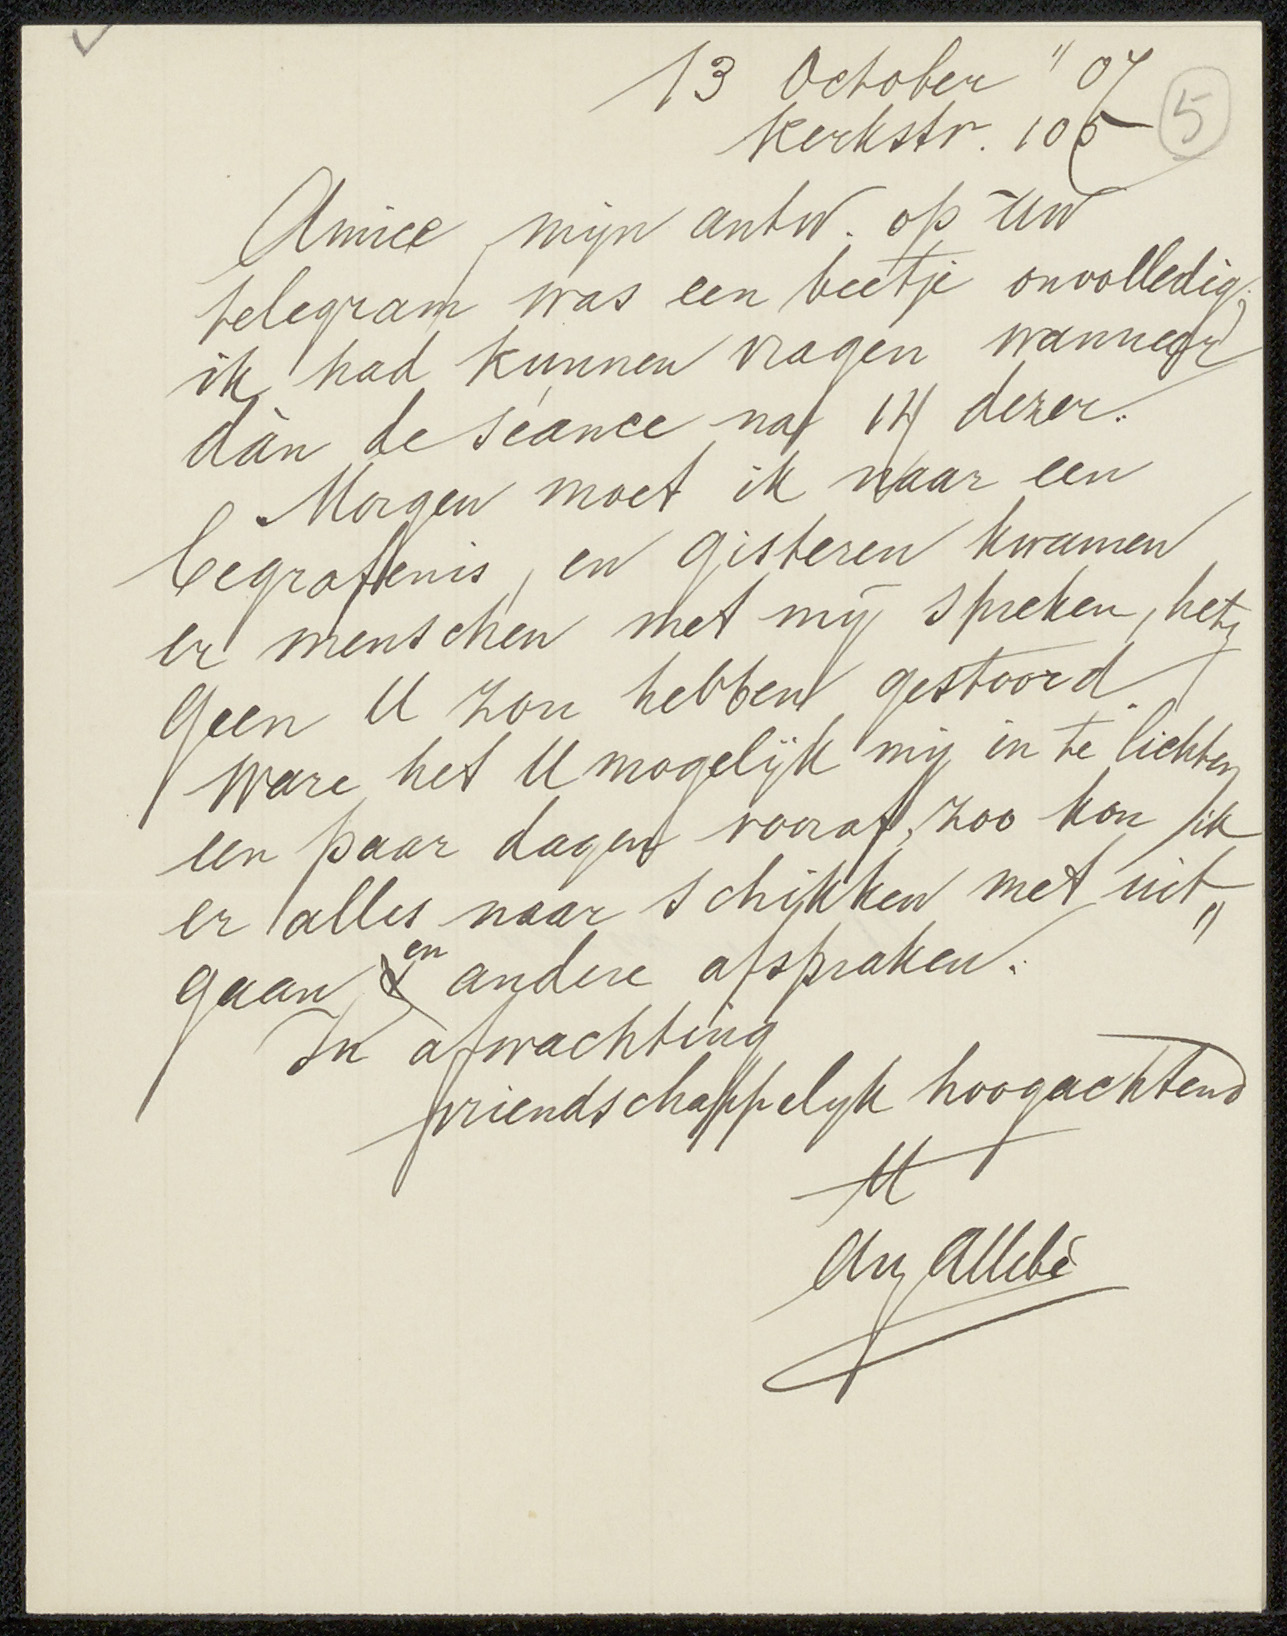 13 October "07
Kerkstr. 105
5
Amice, mijn antw. op Uw
telegram was een beetje onvolledig;
ik had kunnen vragen wanneer
dàn de séance na 14 dezer.
Morgen moet ik naar een
begrafenis, en gisteren kwamen
er menschen met mij spreken, het
geen U zou hebben gestoord.
Ware het U mogelijk mij in te lichten
een paar dagen vooraf, zoo kon ik
er alles naar schikken met uit„
gaan en andere afspraken.
In afwachting
vriendschappelijk hoogachtend
Aug Allebé